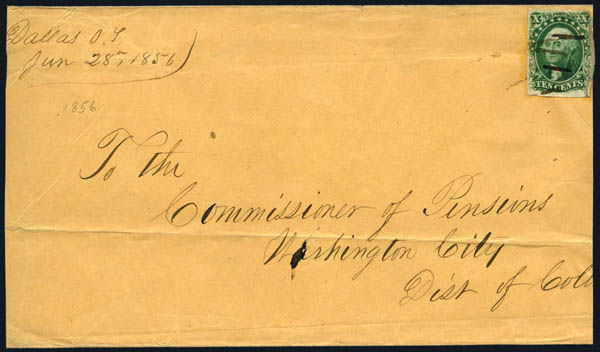 Dallas O.T.
Jun 28th, 1856
1856
X X
TEN CENTS
To the
Commissioner of Pensions
Washington City
Dist of Colu